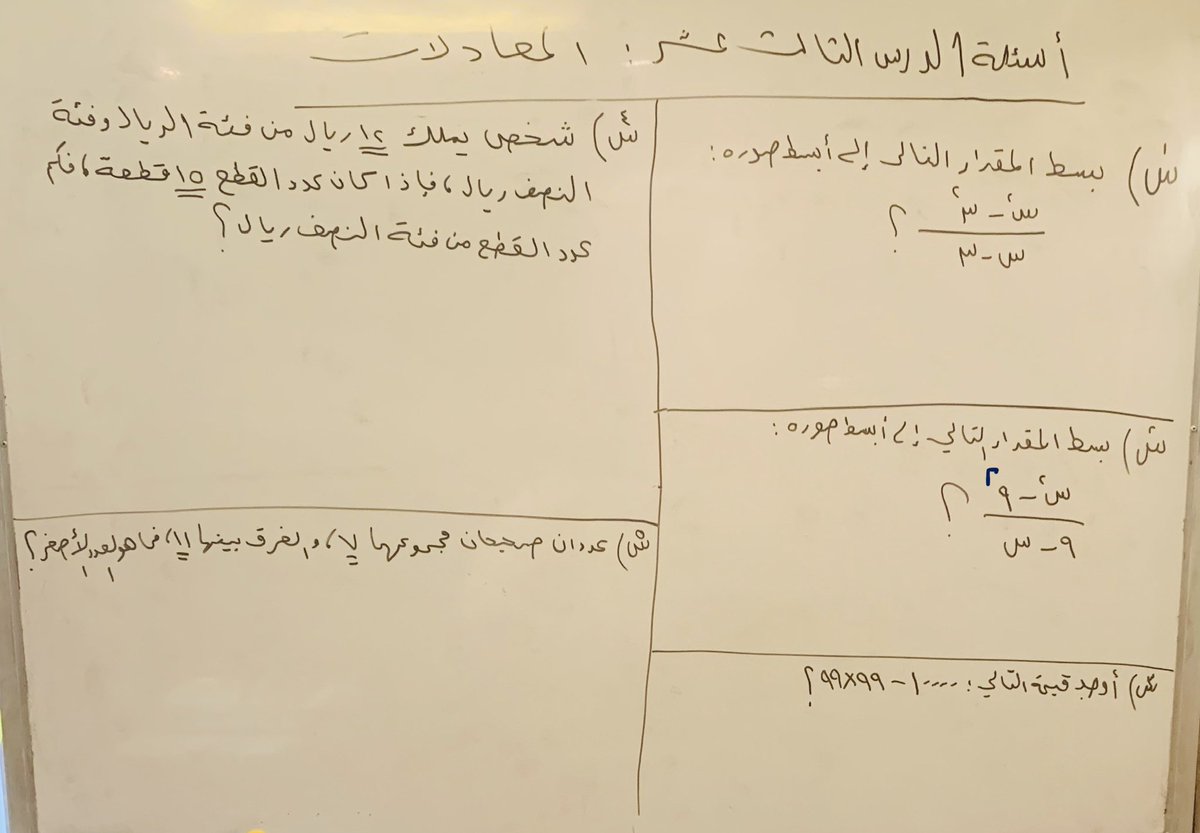 أسئلة الدرس الثالث عشر: المعادلات
س١) بسط المقدار التالي إلى أبسط صوره:
س٢ - ٣٢
س - ٣
؟
س٢) بسط المقدار التالي إلى أبسط صوره:
س٢ - ٩٢
٩ - س
؟
س٣) أوجد قيمة التالي: ١٠٠٠٠ - ٩٩×٩٩ ؟
س٤) شخص يملك ١٢ ريال من فئة الريال وفئة
النصف ريال، فإذا كان عدد القطع ١٥ قطعة، فكم
عدد القطع من فئة النصف ريال؟
س٥) عددان صحيحان مجموعهما ٧، والفرق بينهما ١١، فما هو العدد الأصغر؟